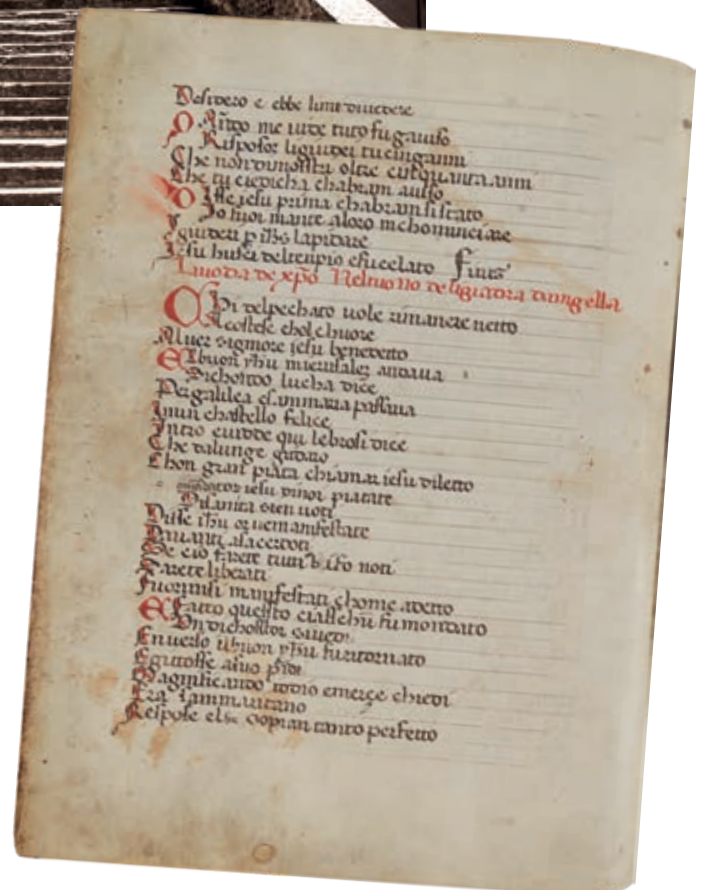 Desidero e ebbe lum divedere
Quãdo me vide tuto fu gauiso
Risposor ligiudei tu cinganni
Che non dimostri oltre cinquanta anni
Che tu ci dicha chabram auiso
Disse iesu prima chabram si stato
Jo fuoi mante aloro mchominciare
Eguideri p ihs lapidare
Iesu husci deltenpio esucelato Finis
Lauda de xpo Nel tuono de liguadra dungella
Chi delpechato uole rimanere netto
Acostese chol chuore
Aluer signiore iesu benedetto
El buon yhu in ierusalez andaua
Sichondo lucha dice
Per galilea esammaria passaua
Inun chastello felice
Intro euidde qui lebrosi dice
Che dalunge gridaro
Chon gran piata chiamar iesu diletto
iesu dinoi piatate
Disse ihu or uemanifestate
Dauanti asacerdoti
Se cio farete tutti
Sarete liberati
Fuoronsi manifestati chome adetto
E fatto questo ciaschũ fu mondato
Un dichostor
Enuerso il buon yhu fu ritornato
Egitosse
Magnificando idio emerçe chiedi
Era sammaritano
Respose else sopian tanto perfetto